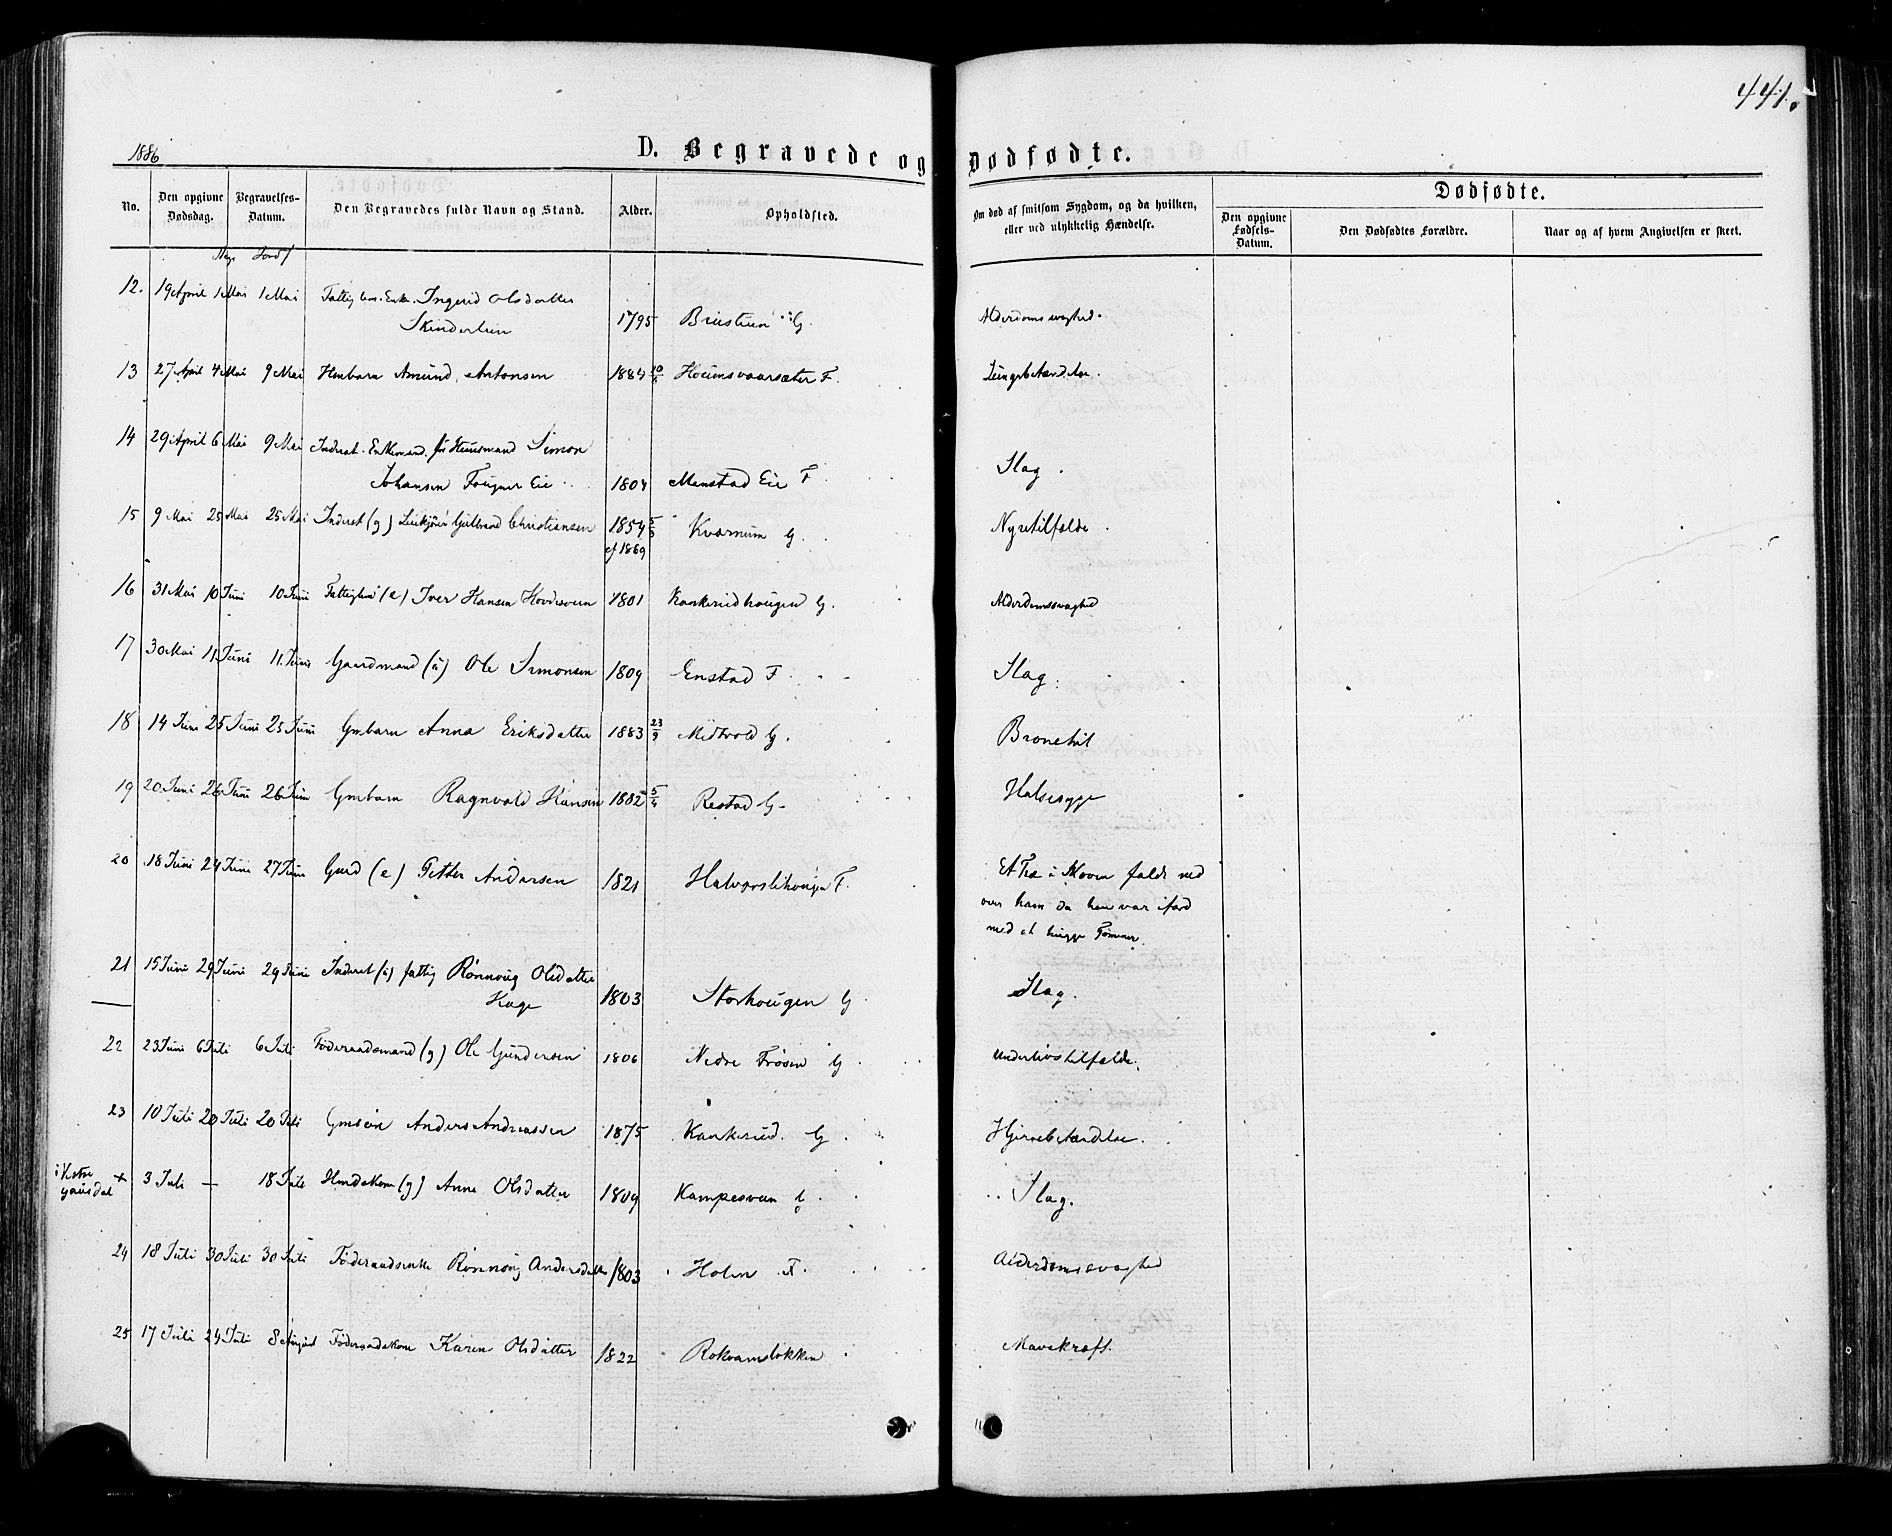 441.
1886
D. Begravede og Dødfødte.
No.
Den opgivne Dødsdag.
Begravelses-Datum.
Den Begravedes fulde Navn og Stand.
Alder.
Opholdsted.
Om død af smitsom Sygdom, og da hvilken, eller ved ulykkelig Hændelse.
Dødfødte.
Den opgivne Fødsels-Datum.
Den Dødfødtes Forældre.
Naar og af hvem Angivelsen er skeet.
12. 19 April 1 Mai 1 Mai Ingerid Olsdatter
1795 G. Alderdomssvaghed.
13 27 April 4 Mai 9 Mai Amund Antonsen 1884 F. Lungebetændelse.
14 29 April 6 Mai 9 Mai Inderst. Enkemand. Huusmand Simon
Johansen Fougner Eie 1804 Eie F Slag.
15 9 Mai 25 Mai 25 Mai Inderst (g) Christiansen 1854 Kvarnum G. Nyretilfælde.
cf 1869
16 31 Mai 10 Juni 10 Juni (e) Iver Hansen 1801 Kankerudhougen G. Alderdomssvaghed
17 30 Mai 11 Juni 11. Juni Gaardmand Ole Simonsen 1809 Enstad F. Slag.
18 14 Juni 25 Juni 25 Juni Gmbarn Anna Eriksdatter 1883 23/9 Midtvold G. Bronchit
19 20 Juni 26 Juni 26 Juni Gmbarn Ragnvald Hansen 1882 5/4 Restad G. Halsesyge
20 18 Juni 24 Juni 27 Juni (e) Petter Andersen 1821 F. Et Træ i Skoven faldt ned
over ham da han var ifærd
med at hugge Tømmer.
21 15 Juni 29 Juni 29 Juni Inderst fattig Rønnoug Olsdatter
Hage 1803 Storhougen G Slag.
22 23 Juni 6 Juli 6 Juli Føderaadsmand (g) Ole Gundersen 1806 Nedre Frøsen G. Underlivstilfælde.
23 10 Juli 20 Juli 20 Juli Gmsøn Anders Andreassen 1875 Kankerud. G. Hjernebetændelse.
i Vestre Gausdal + 3 Juli — 18 Juli (g) Anne Olsdatter 1809 Kampesveen G. Slag.
24 18 Juli 30 Juli 30 Juli Føderaadsenke Rønnoug Andersdatter 1803 Holen F. Alderdomssvaghed
25 17 Juli 24 Juli 8 August Føderaadskone Karen Olsdatter 1822 Rokvamsløkken Mavekræft.